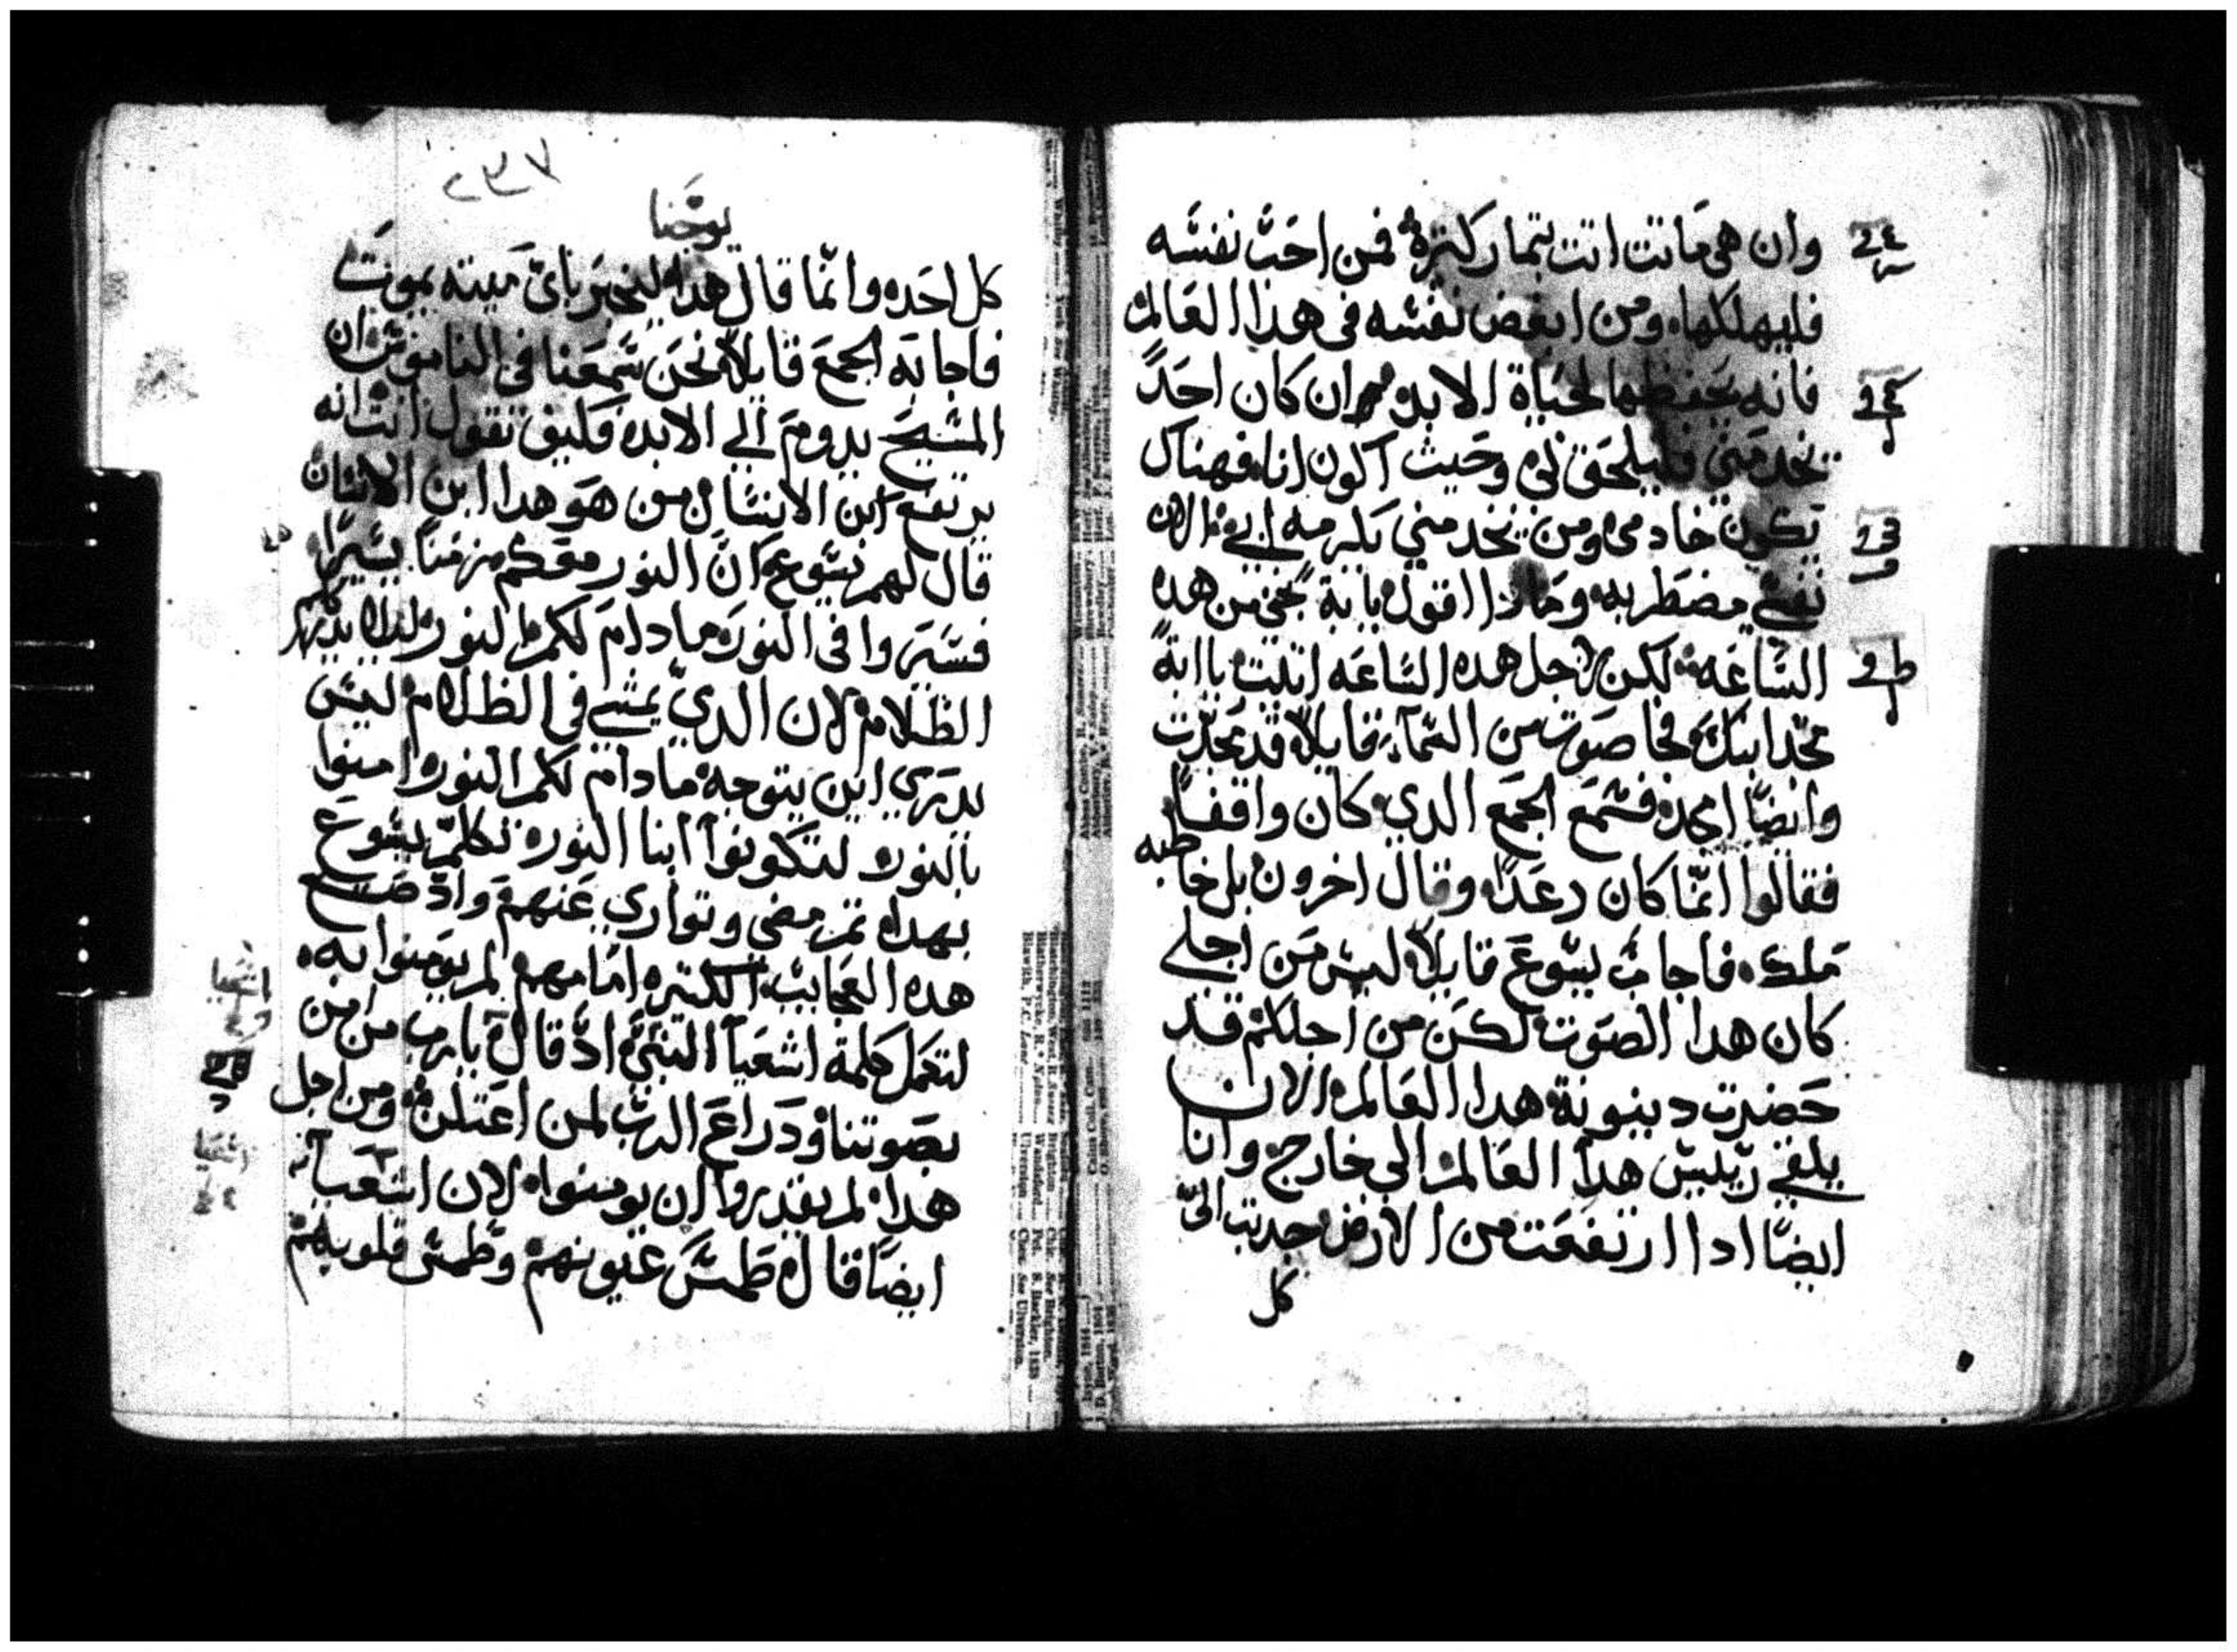 وان هى ماتت اتت بتمار كتيرة فمن احب نفسه
فليهلكها ومن ابغض نفسه فى هذا العالم
فانه يحفظها لحياة الابد ان كان احدً
يخدمني فليلحق بي وحيث اكون انا فهناك
يكون خادمى ومن يخدمني يكرمه ابي الان
نفسي مضطربه وماذا اقول يا ابة نجنى من هده
الساعه لكن لاجل هده الساعه اتيت يا ابة
مجد ابنك فجا صوت من السماء قايلا قد مجدت
وايضًا امجد فسمع الجمع الدي كان واقفًا
فقالوا انما كان رعدًا وقال اخرون بل خاطبه
ملك فاجاب يسوع قايلا ليس من اجلي
كان هدا الصوت لكن من اجلكم قد
حضرت دينونة هدا العالم الان
يلقى رييس هدا العالم الى خارج وانا
ايضًا ادا ارتفعت من الارض جدبت اليّ
كل
٢٣٧
يوحنا
كل احد وانما قال هدا ليخبر باىّ ميته يموت
فاجابه الجمع قايلا نحن سمعنا فى الناموس ان
المسيح يدوم الي الابد فكيف تقول انت انه
يرتفع ابن الانسان من هو هدا ابن الانسان
قال لهم يسوع ان النور معكم زمنًا يسيرًا
فسيروا فى النور مادام لكم النور ليلا يدرككم
الظلام لان الدي يمشي في الظلام ليس
يدري اين يتوجه مادام لكم النور امنوا
بالنور لتكونوا ابنا النور تكلم يسوع
بهدا تم مضي وتواري عنهم واد صنع
هده العجايب الكتيره امامهم لم يومنوا به
لتكمل كلمة اشعيا النبي اد قال يا رب من امن
بصوتنا ودراع الرب لمن اعتلن ومن اجل
هدا لم يقدروا ان يومنوا لان اشعيا
ايضًا قال طمس عيونهم وطمس قلوبهم
اشعيا